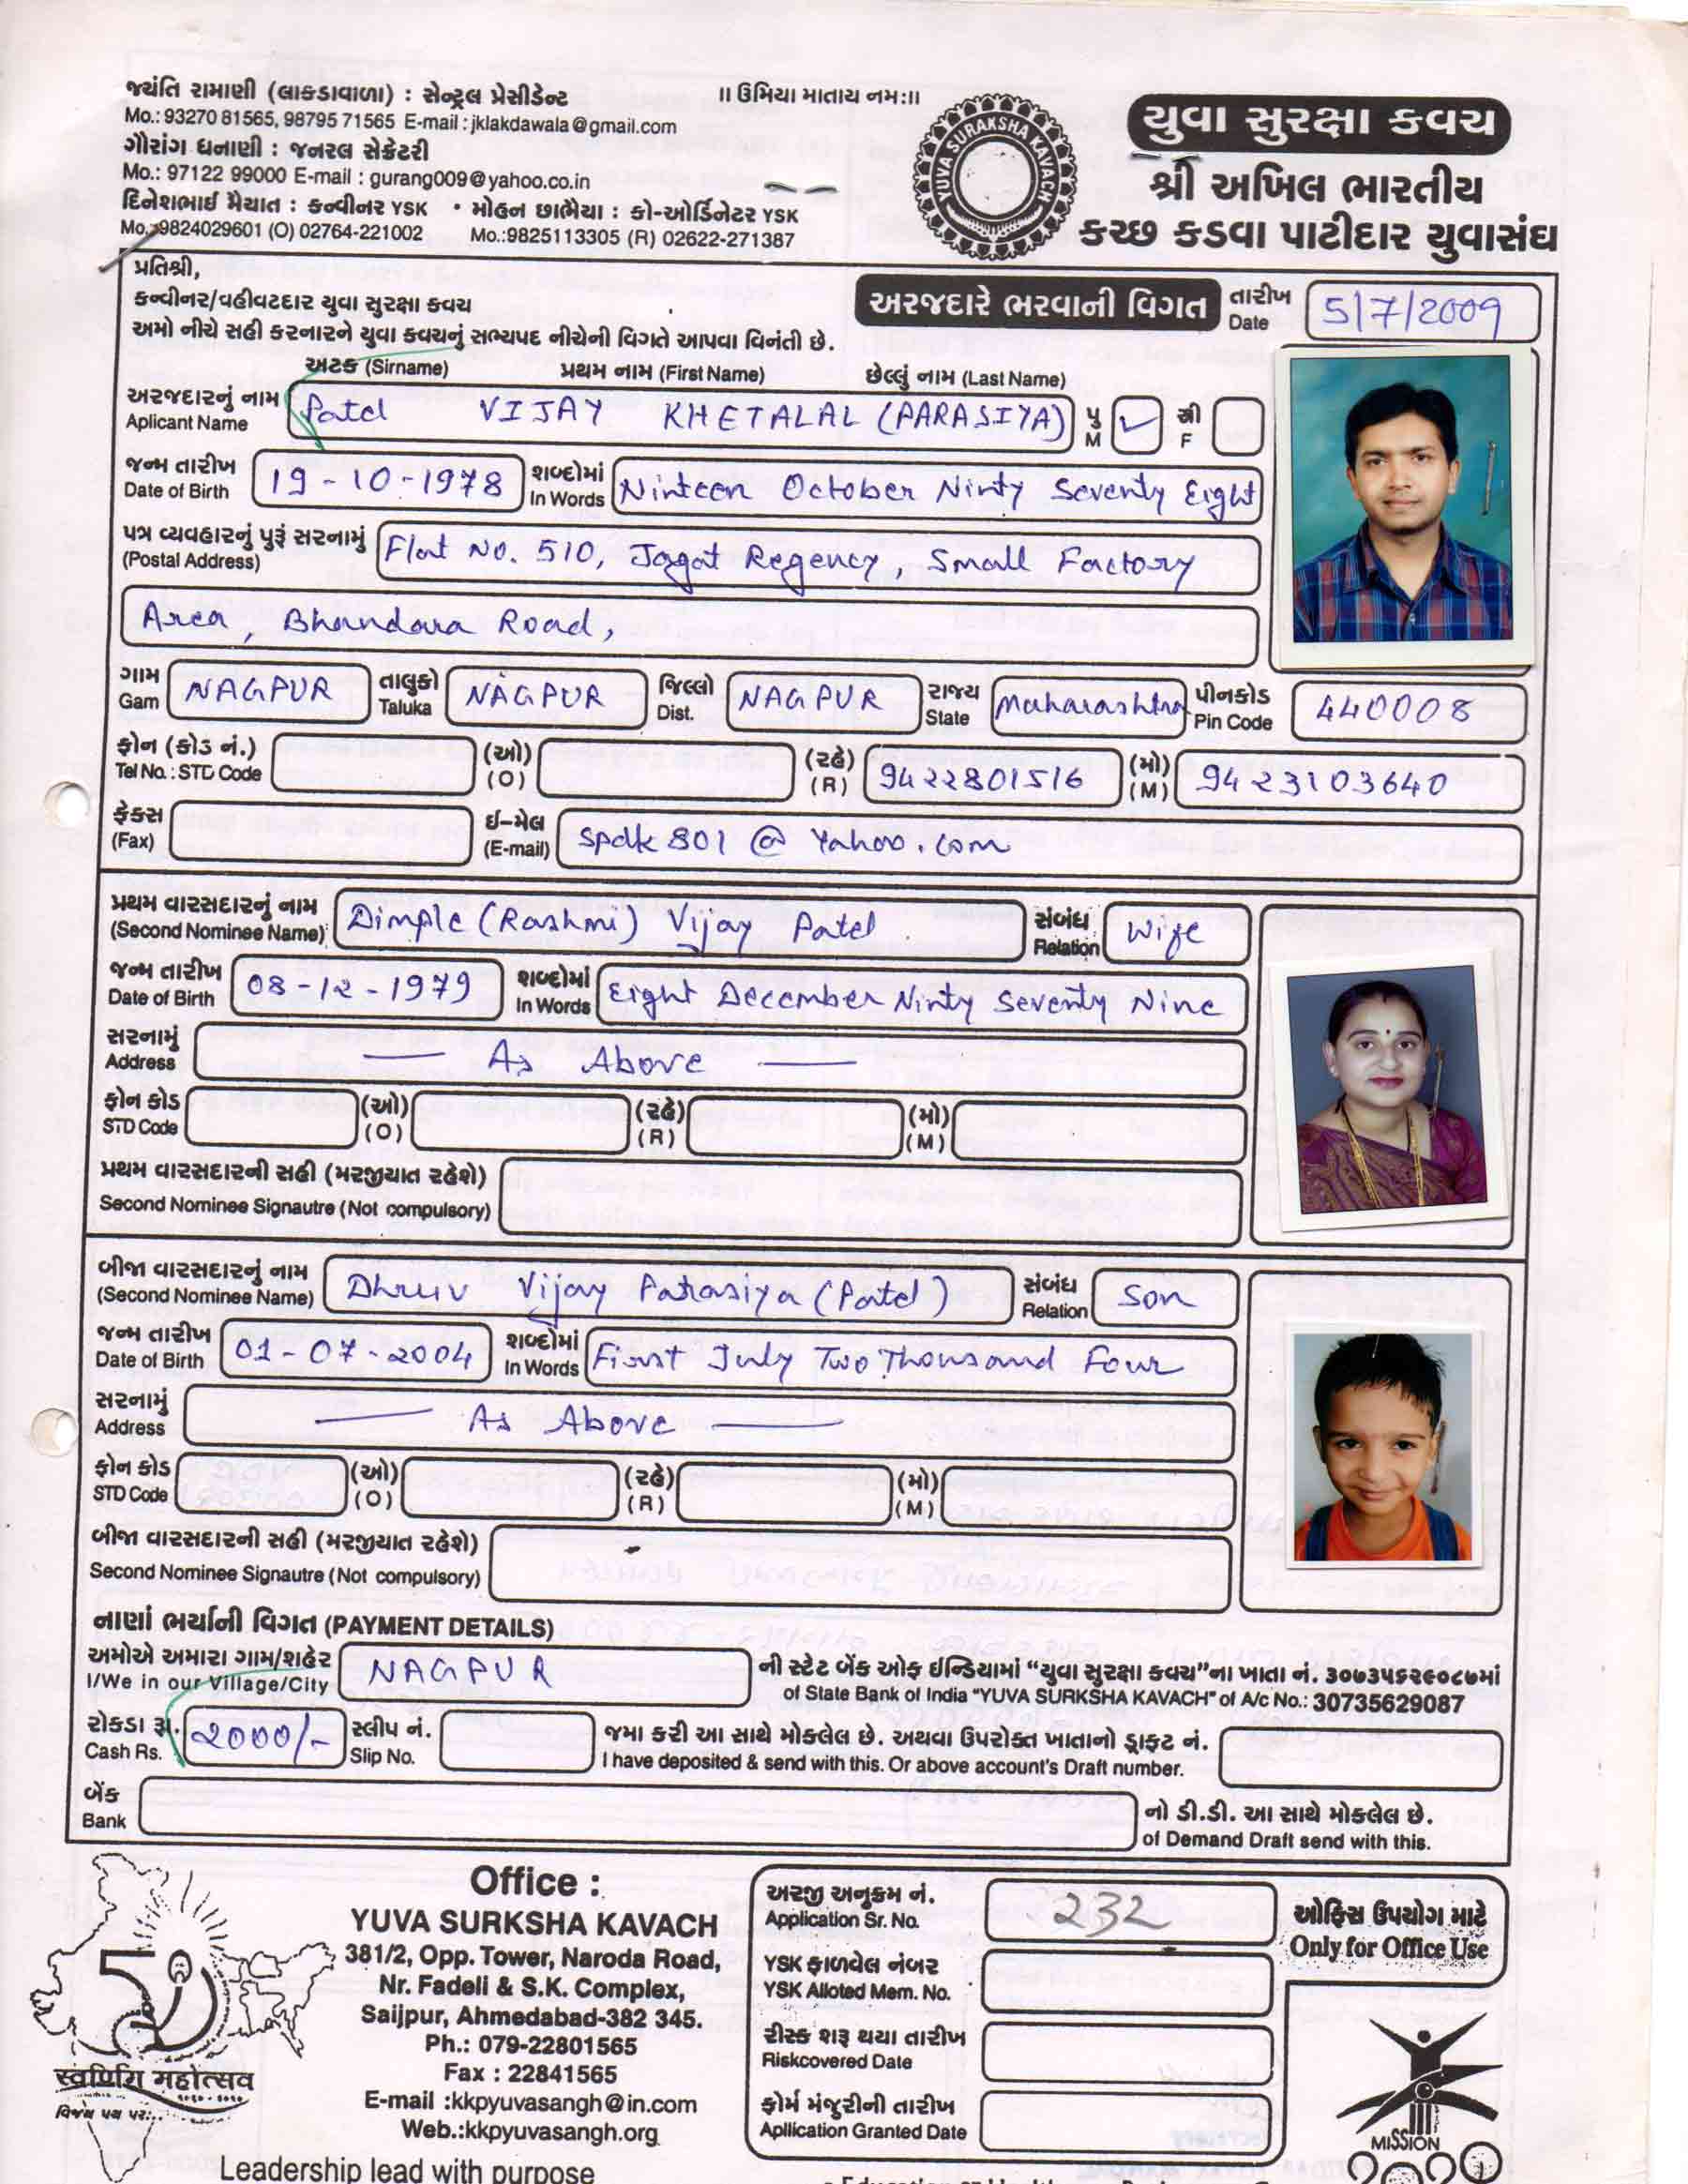 જયંતિ રામાણી (લાકડાવાળા) : સેન્ટ્રલ પ્રેસીડેન્ટ
Mo.: 93270 81565, 98795 71565 E-mail : jklakdawala@gmail.com
ગૌરાંગ ધનાણી : જનરલ સેક્રેટરી
Mo.: 97122 99000 E-mail : gurang009@yahoo.co.in
દિનેશભાઈ મૈયાત : કન્વીનર YSK • મોહન છાભૈયા : કો-ઓર્ડિનેટર YSK
Mo.:9824029601 (O) 02764-221002 Mo.:9825113305 (R) 02622-271387
॥ ઉમિયા માતાય નમઃ॥
YUVA SURAKSHA KAVACH
યુવા સુરક્ષા કવચ
શ્રી અખિલ ભારતીય
કચ્છ કડવા પાટીદાર યુવાસંઘ
પ્રતિશ્રી,
કન્વીનર/વહીવટદાર યુવા સુરક્ષા કવચ
અમો નીચે સહી કરનારને યુવા કવચનું સભ્યપદ નીચેની વિગતે આપવા વિનંતી છે.
અરજદારે ભરવાની વિગત તારીખ Date 5/7/2009
અટક (Sirname) પ્રથમ નામ (First Name) છેલ્લું નામ (Last Name)
અરજદારનું નામ Aplicant Name Patel VIJAY KHETALAL (PARASIYA) પુ M ✓ સ્ત્રી F
જન્મ તારીખ Date of Birth 19-10-1978 શબ્દોમાં In Words Ninteen October Ninty Seventy Eight
પત્ર વ્યવહારનું પુરૂં સરનામું (Postal Address) Flat No. 510, Jagat Regency, Small Factory
Area, Bhandara Road,
ગામ Gam NAGPUR તાલુકો Taluka NAGPUR જિલ્લો Dist. NAGPUR રાજ્ય State Maharashtra પીનકોડ Pin Code 440008
ફોન (કોડ નં.) Tel No.: STD Code (ઓ) (O) (રહે) (R) 9422801516 (મો) (M) 9423103640
ફેક્સ (Fax) ઈ-મેલ (E-mail) spdk801@Yahoo.com
પ્રથમ વારસદારનું નામ (Second Nominee Name) Dimple (Rashmi) Vijay Patel સંબંધ Relation Wife
જન્મ તારીખ Date of Birth 08-12-1979 શબ્દોમાં In Words Eight December Ninty Seventy Nine
સરનામું Address — As Above —
ફોન કોડ STD Code (ઓ) (O) (રહે) (R) (મો) (M)
પ્રથમ વારસદારની સહી (મરજીયાત રહેશે)
Second Nominee Signautre (Not compulsory)
બીજા વારસદારનું નામ (Second Nominee Name) Dhruv Vijay Parasiya (Patel) સંબંધ Relation Son
જન્મ તારીખ Date of Birth 01-07-2004 શબ્દોમાં In Words First July Two Thousand Four
સરનામું Address — As Above —
ફોન કોડ STD Code (ઓ) (O) (રહે) (R) (મો) (M)
બીજા વારસદારની સહી (મરજીયાત રહેશે)
Second Nominee Signautre (Not compulsory)
નાણાં ભર્યાની વિગત (PAYMENT DETAILS)
અમોએ અમારા ગામ/શહેર NAGPUR ની સ્ટેટ બેંક ઓફ ઈન્ડિયામાં “યુવા સુરક્ષા કવચ”ના ખાતા નં. ૩૦૭૩૫૬૨૯૦૮૭માં
I/We in our Village/City of State Bank of India "YUVA SURKSHA KAVACH" of A/c No.: 30735629087
રોકડા રૂ. 2000/- સ્લીપ નં. જમા કરી આ સાથે મોકલેલ છે. અથવા ઉપરોક્ત ખાતાનો ડ્રાફ્ટ નં.
Cash Rs. Slip No. I have deposited & send with this. Or above account's Draft number.
બેંક નો ડી.ડી. આ સાથે મોકલેલ છે.
Bank of Demand Draft send with this.
50
સ્વર્ણિમ મહોત્સવ
Office :
YUVA SURKSHA KAVACH
381/2, Opp. Tower, Naroda Road,
Nr. Fadeli & S.K. Complex,
Saijpur, Ahmedabad-382 345.
Ph.: 079-22801565
Fax : 22841565
E-mail :kkpyuvasangh@in.com
Web.:kkpyuvasangh.org
Leadership lead with purpose
અરજી અનુક્રમ નં. Application Sr. No. 232
YSK ફાળવેલ નંબર YSK Alloted Mem. No.
રીસ્ક શરૂ થયા તારીખ Riskcovered Date
ફોર્મ મંજુરીની તારીખ Apllication Granted Date
ઓફિસ ઉપયોગ માટે
Only for Office Use
MISSION
2020